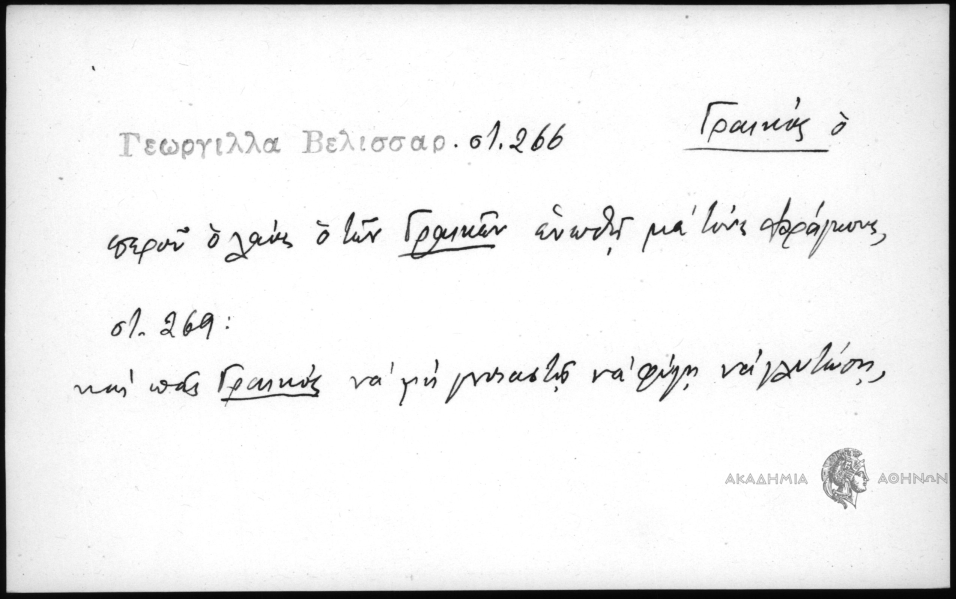 Γεωργιλλα Βελισσαρ. στ. 266
Γραικός ὁ
ὁ λαὸς ὁ τῶν Γραικῶν ἑνωθῇ μὲ τοὺς Φράγκους,
στ. 269:
καὶ πᾶς Γραικὸς νὰ μὴ νὰ φύγῃ νὰ γλυτώσῃ,
ΑΚΑΔΗΜΙΑ ΑΘΗΝΩΝ